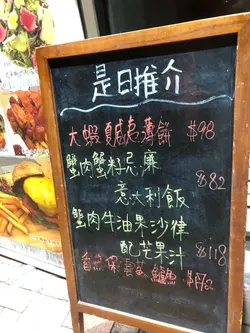 是日推介
大蝦夏威夷薄餅 $98
蟹肉蟹籽忌廉
意大利飯 $82
蟹肉牛油果沙律
配芒果汁 $118
香煎 雲吞鱸魚